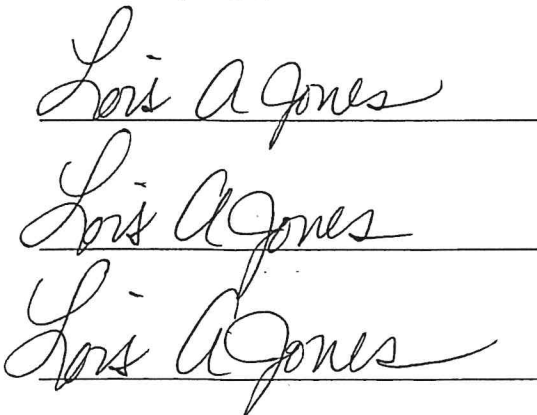 Lois A Jones
Lois A Jones
Lois A Jones